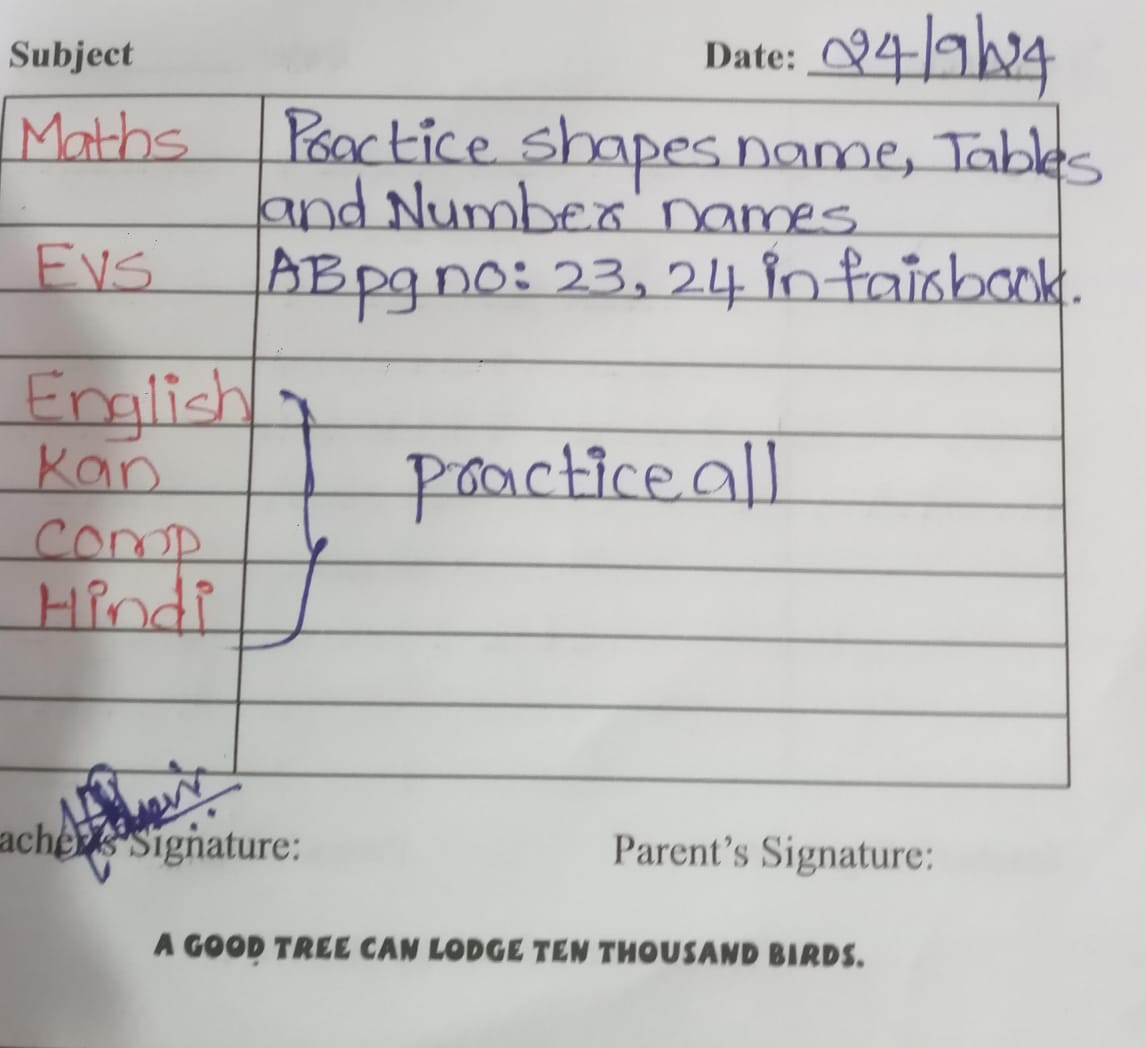 Subject Date: 24/9/24
Maths Practice shapes name, Tables
and Number names
EVS AB pg no: 23, 24 in fairbook.
English
Kan practice all
Comp
Hindi
acher's Signature: Parent's Signature:
A GOOD TREE CAN LODGE TEN THOUSAND BIRDS.